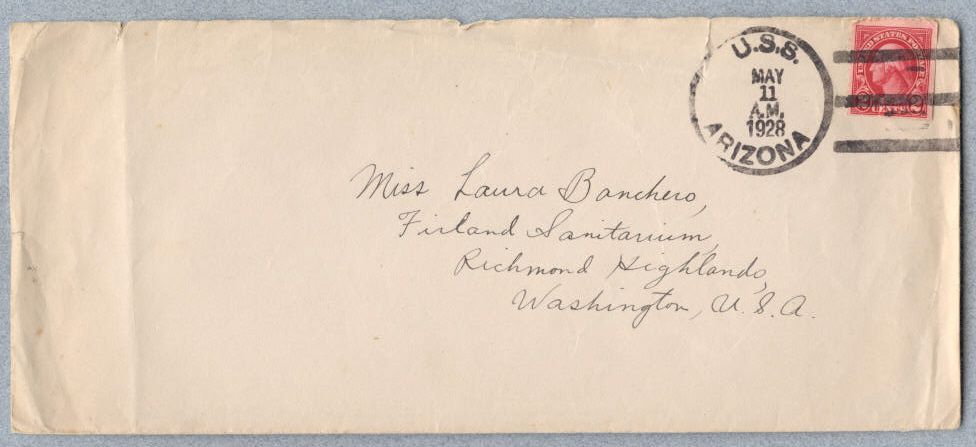 U.S.S.
MAY
11
A.M.
1928
ARIZONA
UNITED STATES POSTAGE
2 CENTS 2
Miss Laura Banchero,
Firland Sanitarium,
Richmond Highlands,
Washington, U.S.A.